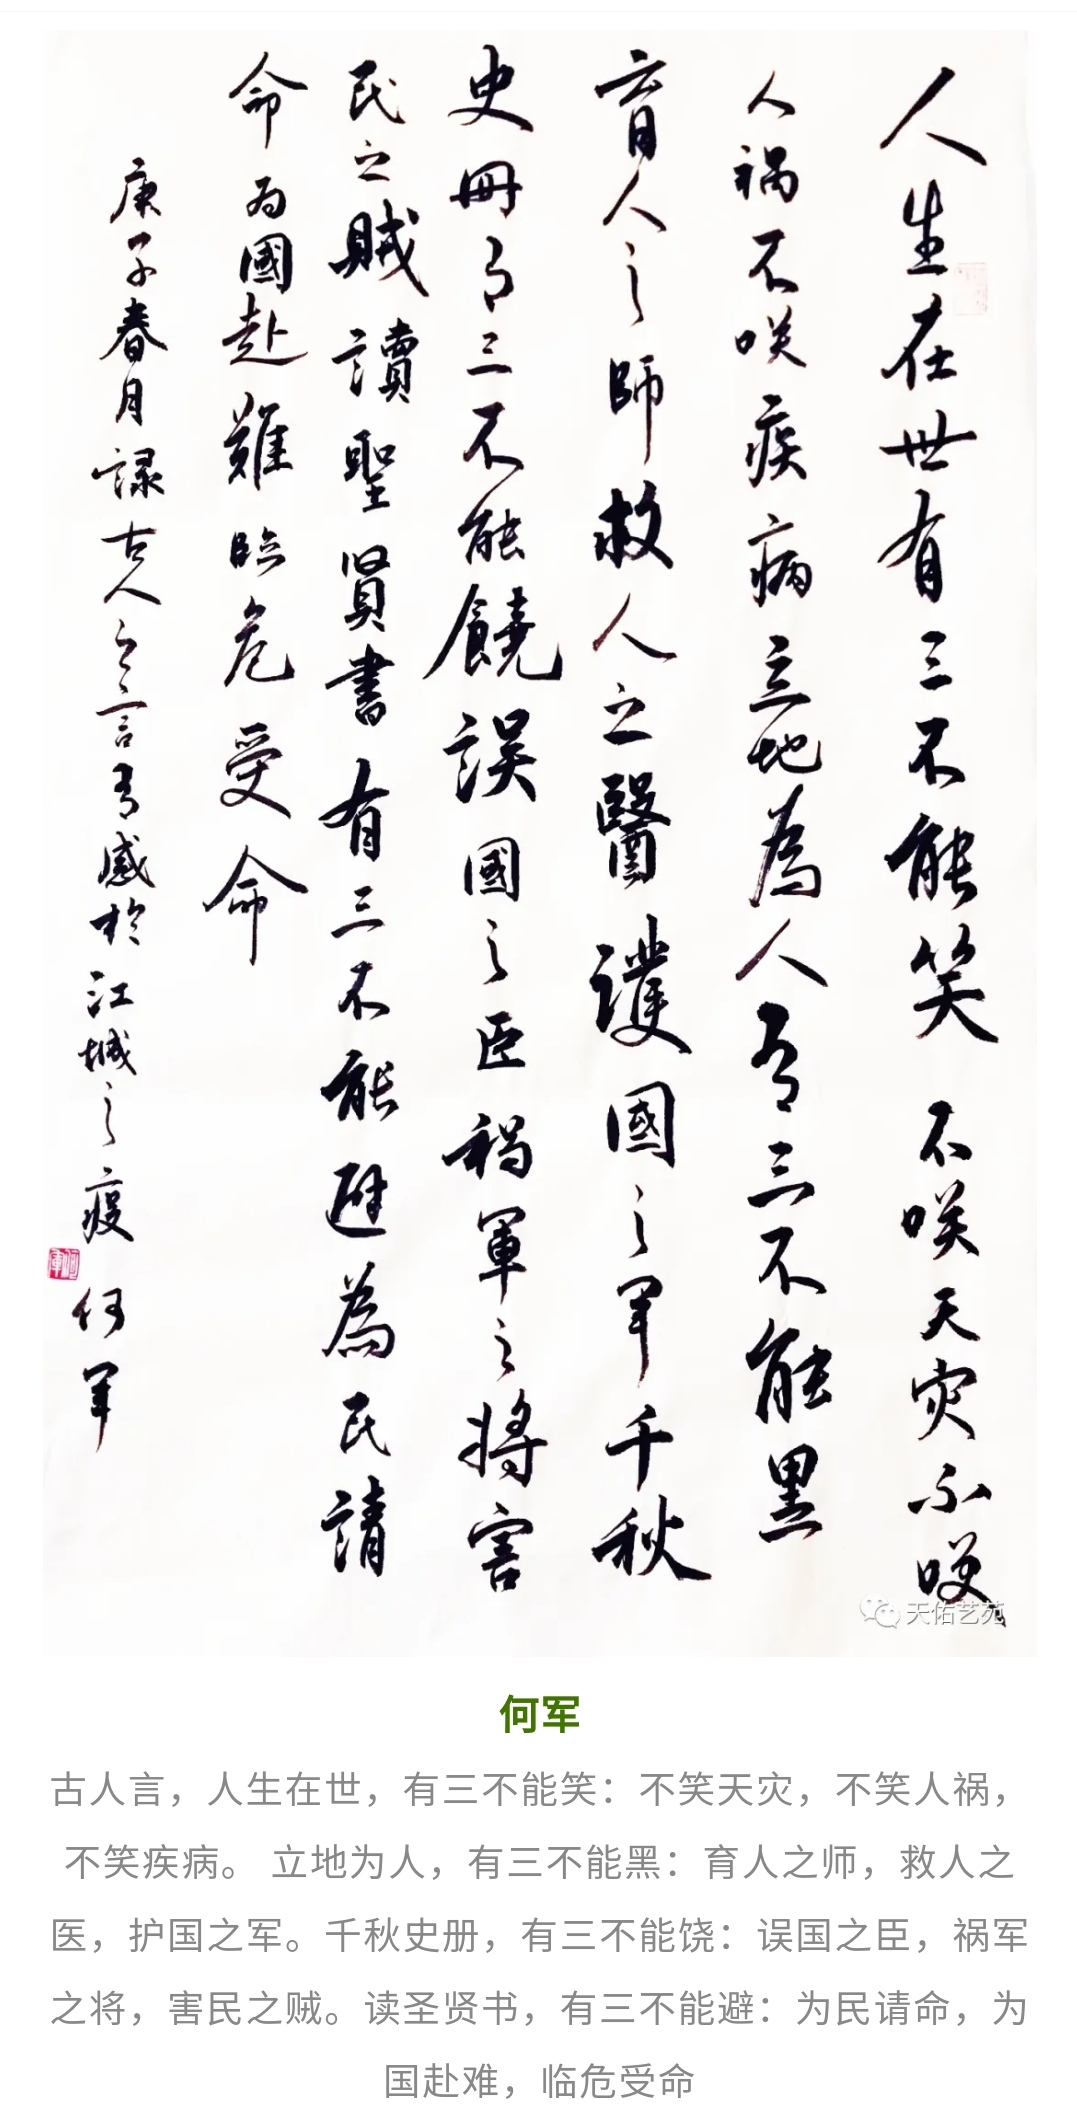 人生在世有三不能笑不咲天灾不咲
人祸不咲疾病立地為人有三不能黑
育人之師救人之醫護國之軍千秋
史冊有三不能饒誤國之臣禍軍之將害
民之賊讀聖賢書有三不能避為民請
命为國赴難臨危受命
庚子春月録古人之言有感於江城之疫
何军
天佑艺苑
何军
古人言，人生在世，有三不能笑：不笑天灾，不笑人祸，
不笑疾病。 立地为人，有三不能黑：育人之师，救人之
医，护国之军。千秋史册，有三不能饶：误国之臣，祸军
之将，害民之贼。读圣贤书，有三不能避：为民请命，为
国赴难，临危受命